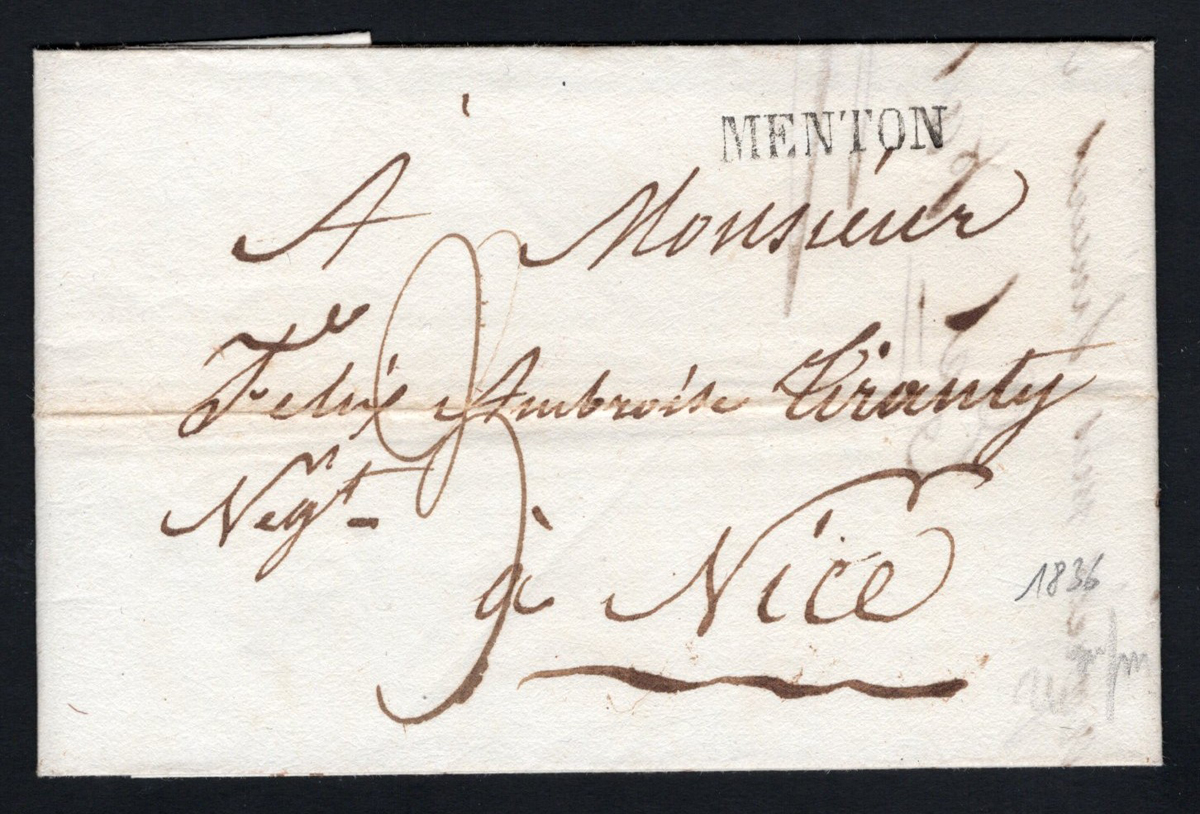 MENTON
A Monsieur
Felix Ambroise Tiranty
Negt
à Nice
1836